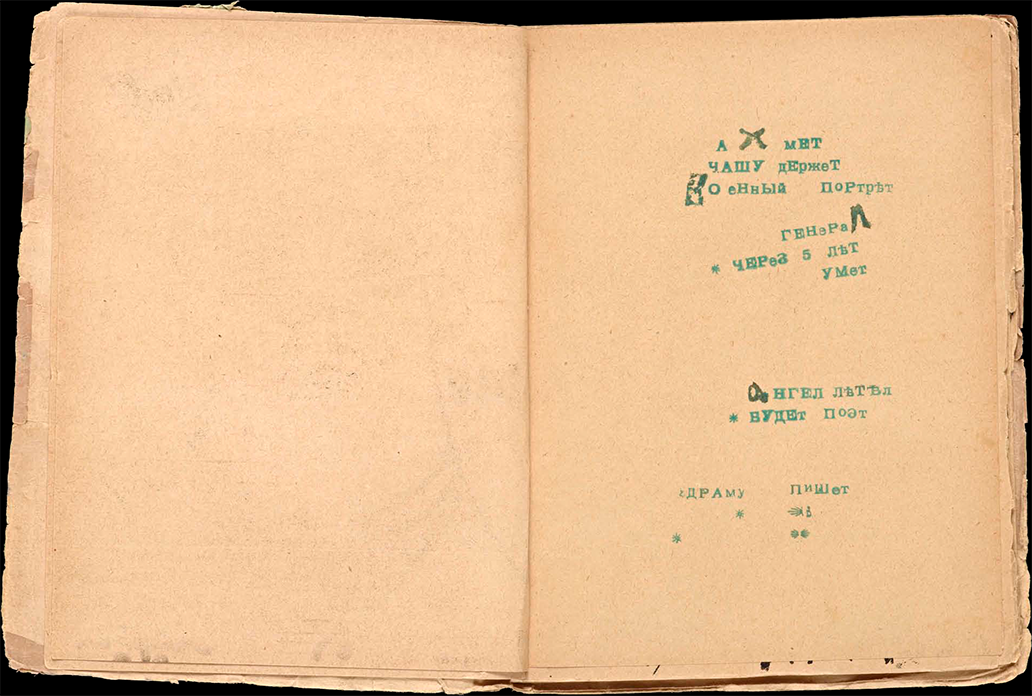 А Х мЕТ
ЧАШУ дЕржеТ
ВО еННЫЙ ПОРТРѣТ
ГЕНеРаЛ
* ЧЕРеЗ 5 ЛѣТ
УМет
АНГЕЛ ЛѣТѣЛ
* БУДЕТ ПоЭТ
ДРАМУ ПИШет
*
* **